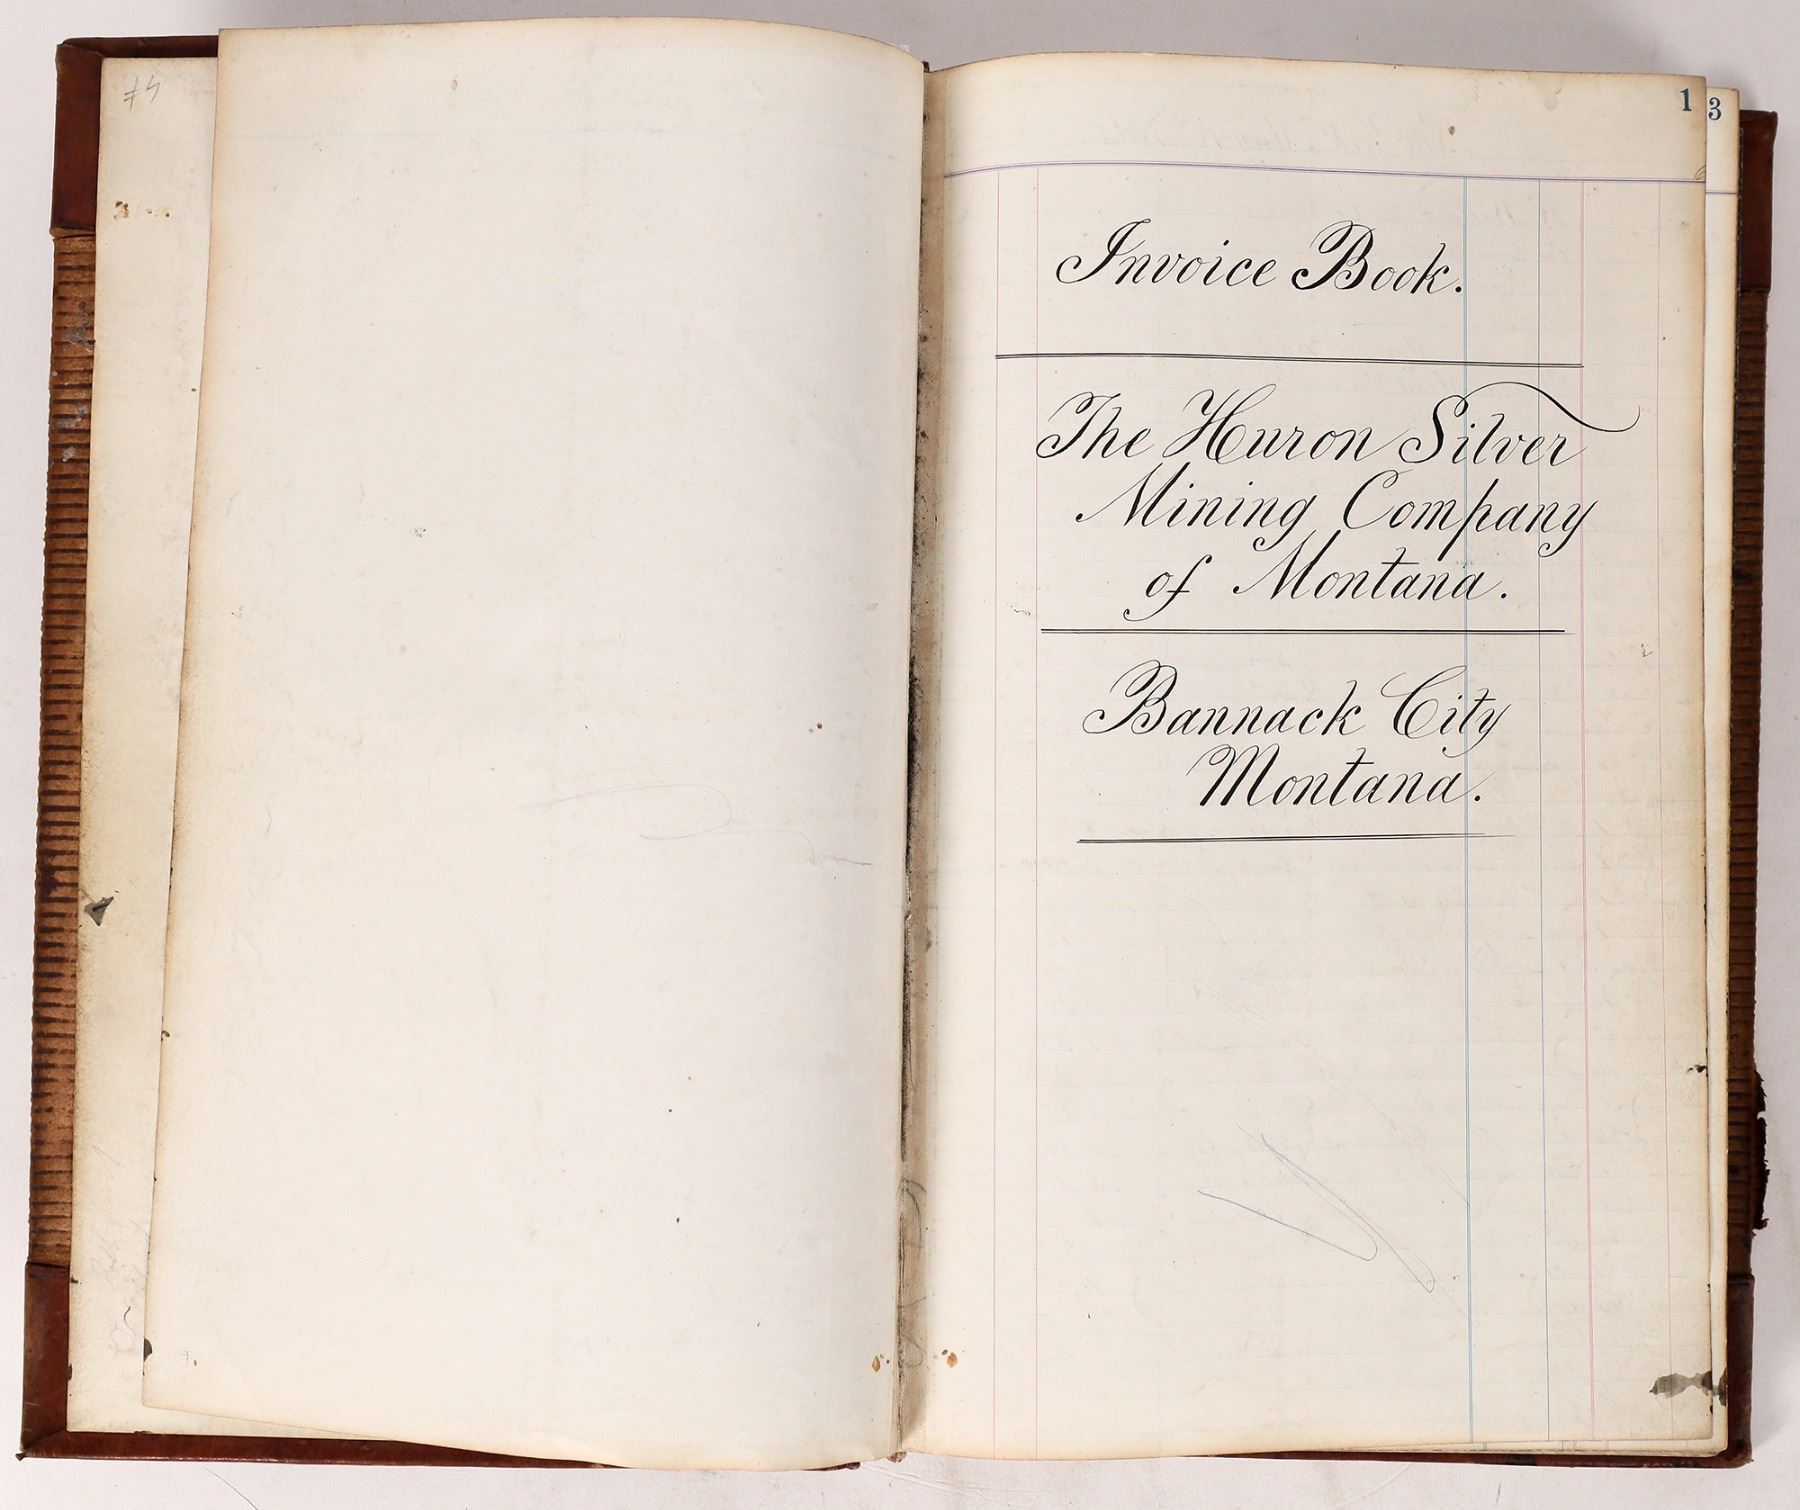 1
3
Invoice Book.
The Huron Silver
Mining Company
of Montana.
Bannack City
Montana.